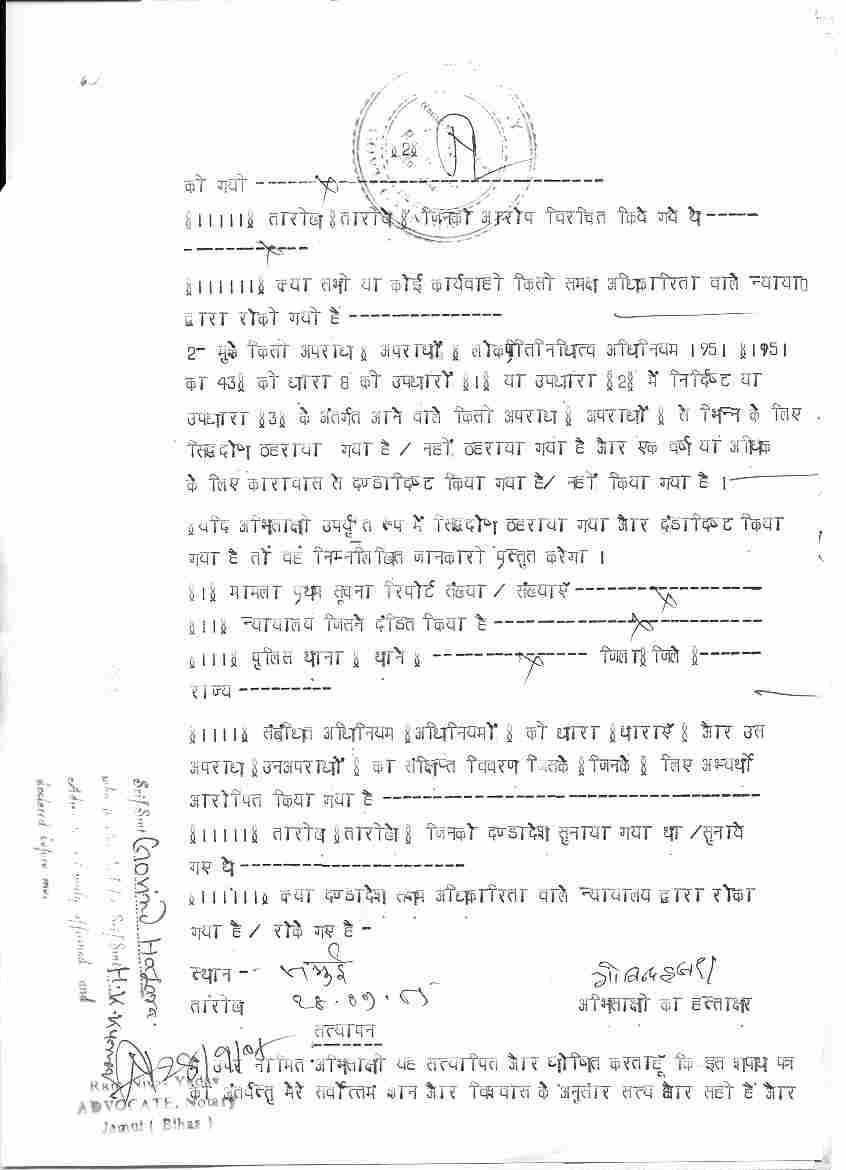 §2§
की गयी -----------------------------------
§।।।।।§ तारीख §तारीखें§ जिनको आरोप विरचित किये गये थे-----
------------
§।।।।।।§ क्या सभी या कोई कार्यवाही किसी समक्ष अधिकारिता वाले न्याया०
द्वारा रोकी गयी है ---------------
2- मुझे किसी अपराध § अपराधों § लोकप्रतिनिधित्व अधिनियम 1951 §1951
का 43§ की धारा 8 की उपधारों §1§ या उपधारा §2§ में निर्दिष्ट या
उपधारा §3§ के अंतर्गत आने वाले किसी अपराध § अपराधों § से भिन्न के लिए
सिद्धदोष ठहराया गया है / नहीं ठहराया गया है और एक वर्ष या अधिक
के लिए कारावास से दण्डादिष्ट किया गया है/ नहीं किया गया है ।
§यदि अभिसाक्षी उपर्युक्त रूप में सिद्धदोष ठहराया गया और दंडादिष्ट किया
गया है तो वह निम्नलिखित जानकारी प्रस्तुत करेगा ।
§।§ मामला प्रथम सूचना रिपोर्ट संख्या / संख्याएँ ------------------
§।।§ न्यायालय जिसने दंडित किया है --------------------------
§।।।§ पुलिस थाना § थाने § --------------- जिला§ जिले §------
राज्य ---------
§।।।।§ संबंधित अधिनियम §अधिनियमों § की धारा §धाराएँ § और उस
अपराध §उनअपराधों § का संक्षिप्त विवरण जिसके §जिनके § लिए अभ्यर्थी
आरोपित किया गया है --------------------------------------
§।।।।।§ तारीख §तारीखें§ जिनको दण्डादेश सुनाया गया था /सुनाये
गए थे----------------------
§।।।।।।§ क्या दण्डादेश सक्षम अधिकारिता वाले न्यायालय द्वारा रोका
गया है / रोके गए है -
स्थान -- जमुई
तारीख २८.०९.०५
अभिसाक्षी का हस्ताक्षर
सत्यापन
उपर नामित अभिसाक्षी यह सत्यापित और घोषित करताहूं कि इस शपथ पत्र
की अंतर्वस्तु मेरे सर्वोत्तम ज्ञान और विश्वास के अनुसार सत्य और सही है और
Sri/Smt Govind Hadara
Sri/Smt H.K.
affirmed and
declared before me.
28/9/05
ADVOCATE, Notary
Jamui ( Bihar )